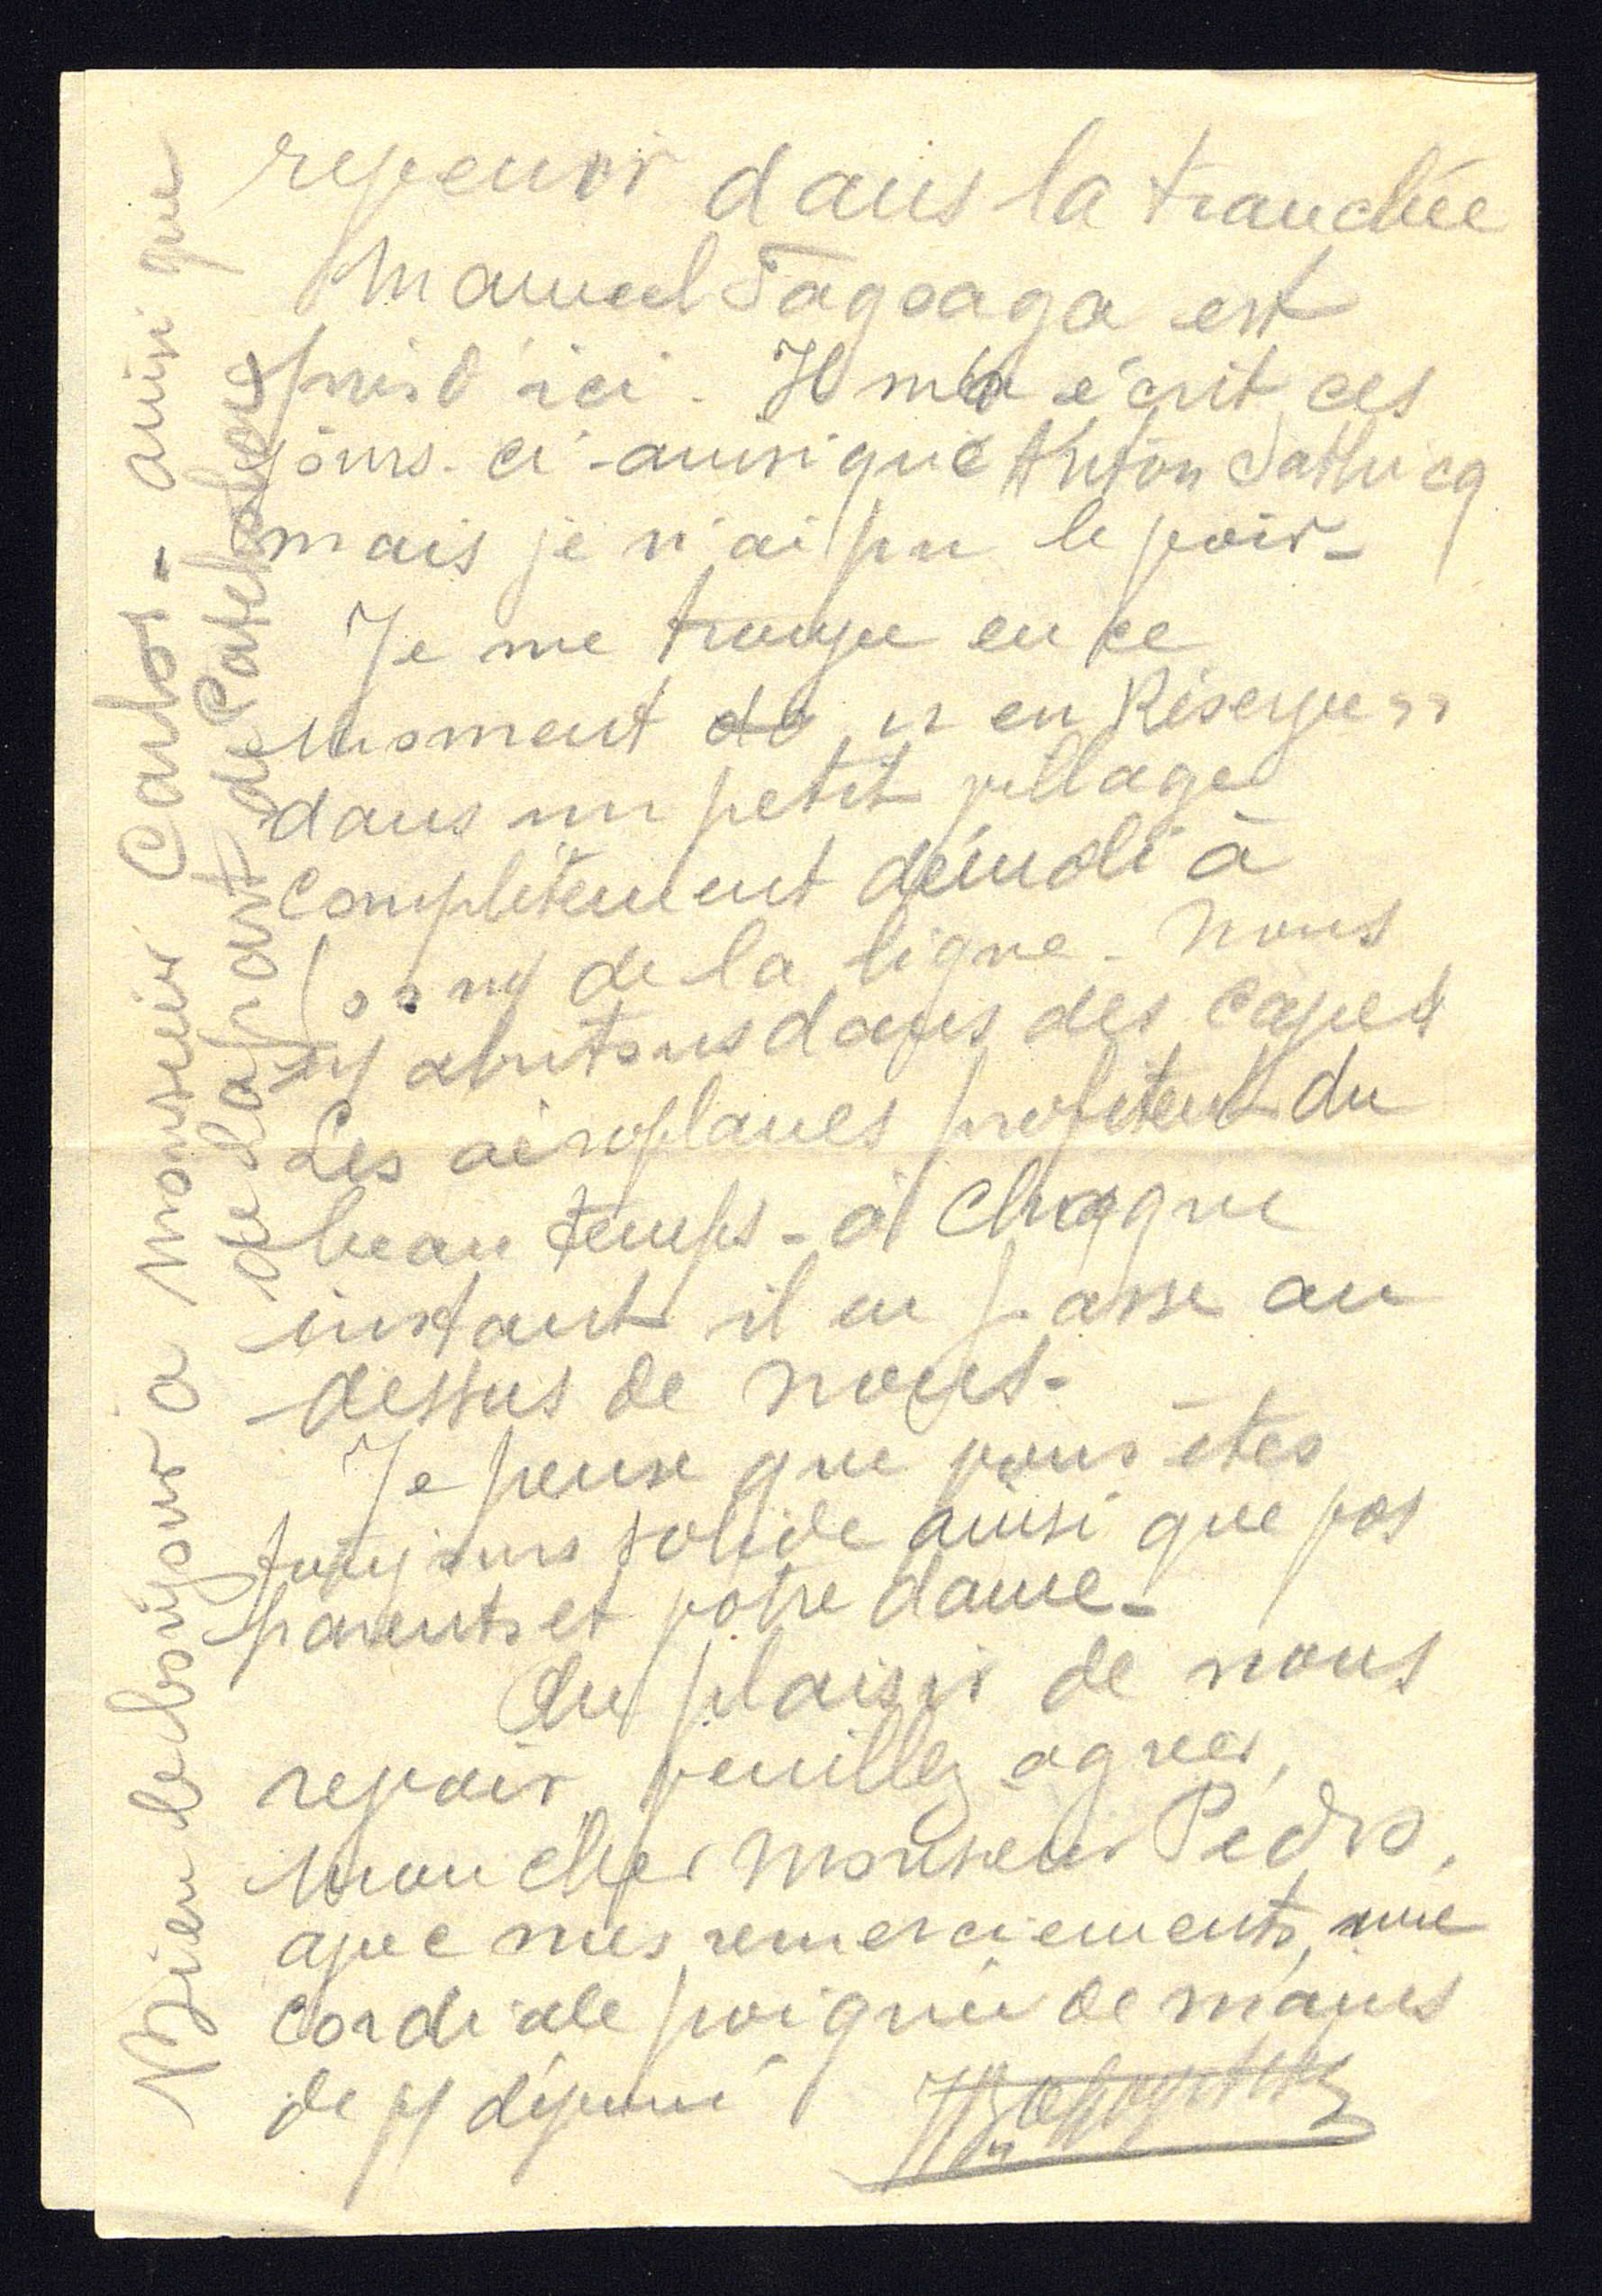 revenir dans la tranchée
Manuel Sagoaga est
près d'ici. Il m'a écrit ces
jours-ci - ainsi que Anton
mais je n'ai pu le voir -
Je me trouve en ce
moment do " en Réserve "
dans un petit village
complètement démoli à
de la ligne - nous
y abritons dans des caves
Les aéroplanes profitent du
beau temps - à chaque
instant il en passe au
dessus de nous -
Je pense que vous êtes
toujours solide ainsi que vos
parents et votre dame -
Au plaisir de vous
revoir veuillez agréer,
mon cher Monsieur Pedro,
avec mes remerciements, une
cordiale poignée de mains
de v/ dévoué
Bien le bonjour à Monsieur Carlos - ainsi que
de la part de